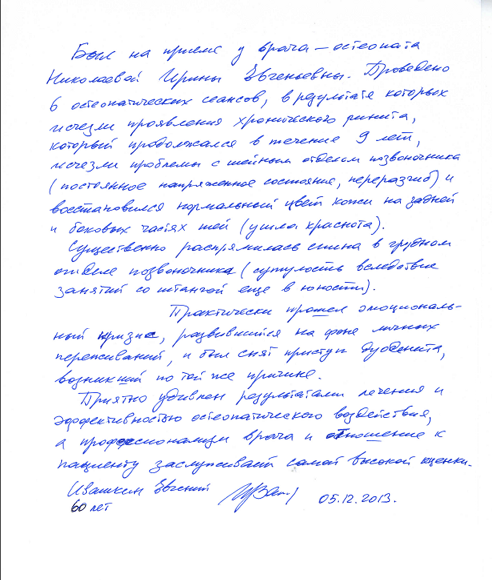 Был на приеме у врача – остеопата
Николаевой Ирины Евгеньевны. Проведено
6 остеопатических сеансов, в результате которых
исчезли проявления хронического ринита,
который продолжался в течение 9 лет,
исчезли проблемы с шейным отделом позвоночника
(постоянное напряженное состояние, ) и
восстановился нормальный цвет кожи на задней
и боковых частях шеи (ушла краснота).
Существенно распрямилась спина в грудном
отделе позвоночника (сутулость вследствие
занятий со штангой еще в юности).
Практически прошел эмоциональ-
ный кризис, развившийся на фоне личных
переживаний, и был снят приступ дуоденита,
возникший по той же причине.
Приятно удивлен результатами лечения и
эффективностью остеопатического воздействия,
а профессионализм врача и отношение к
пациенту заслуживает самой высокой оценки.
Евгений
60 лет 05.12.2013.